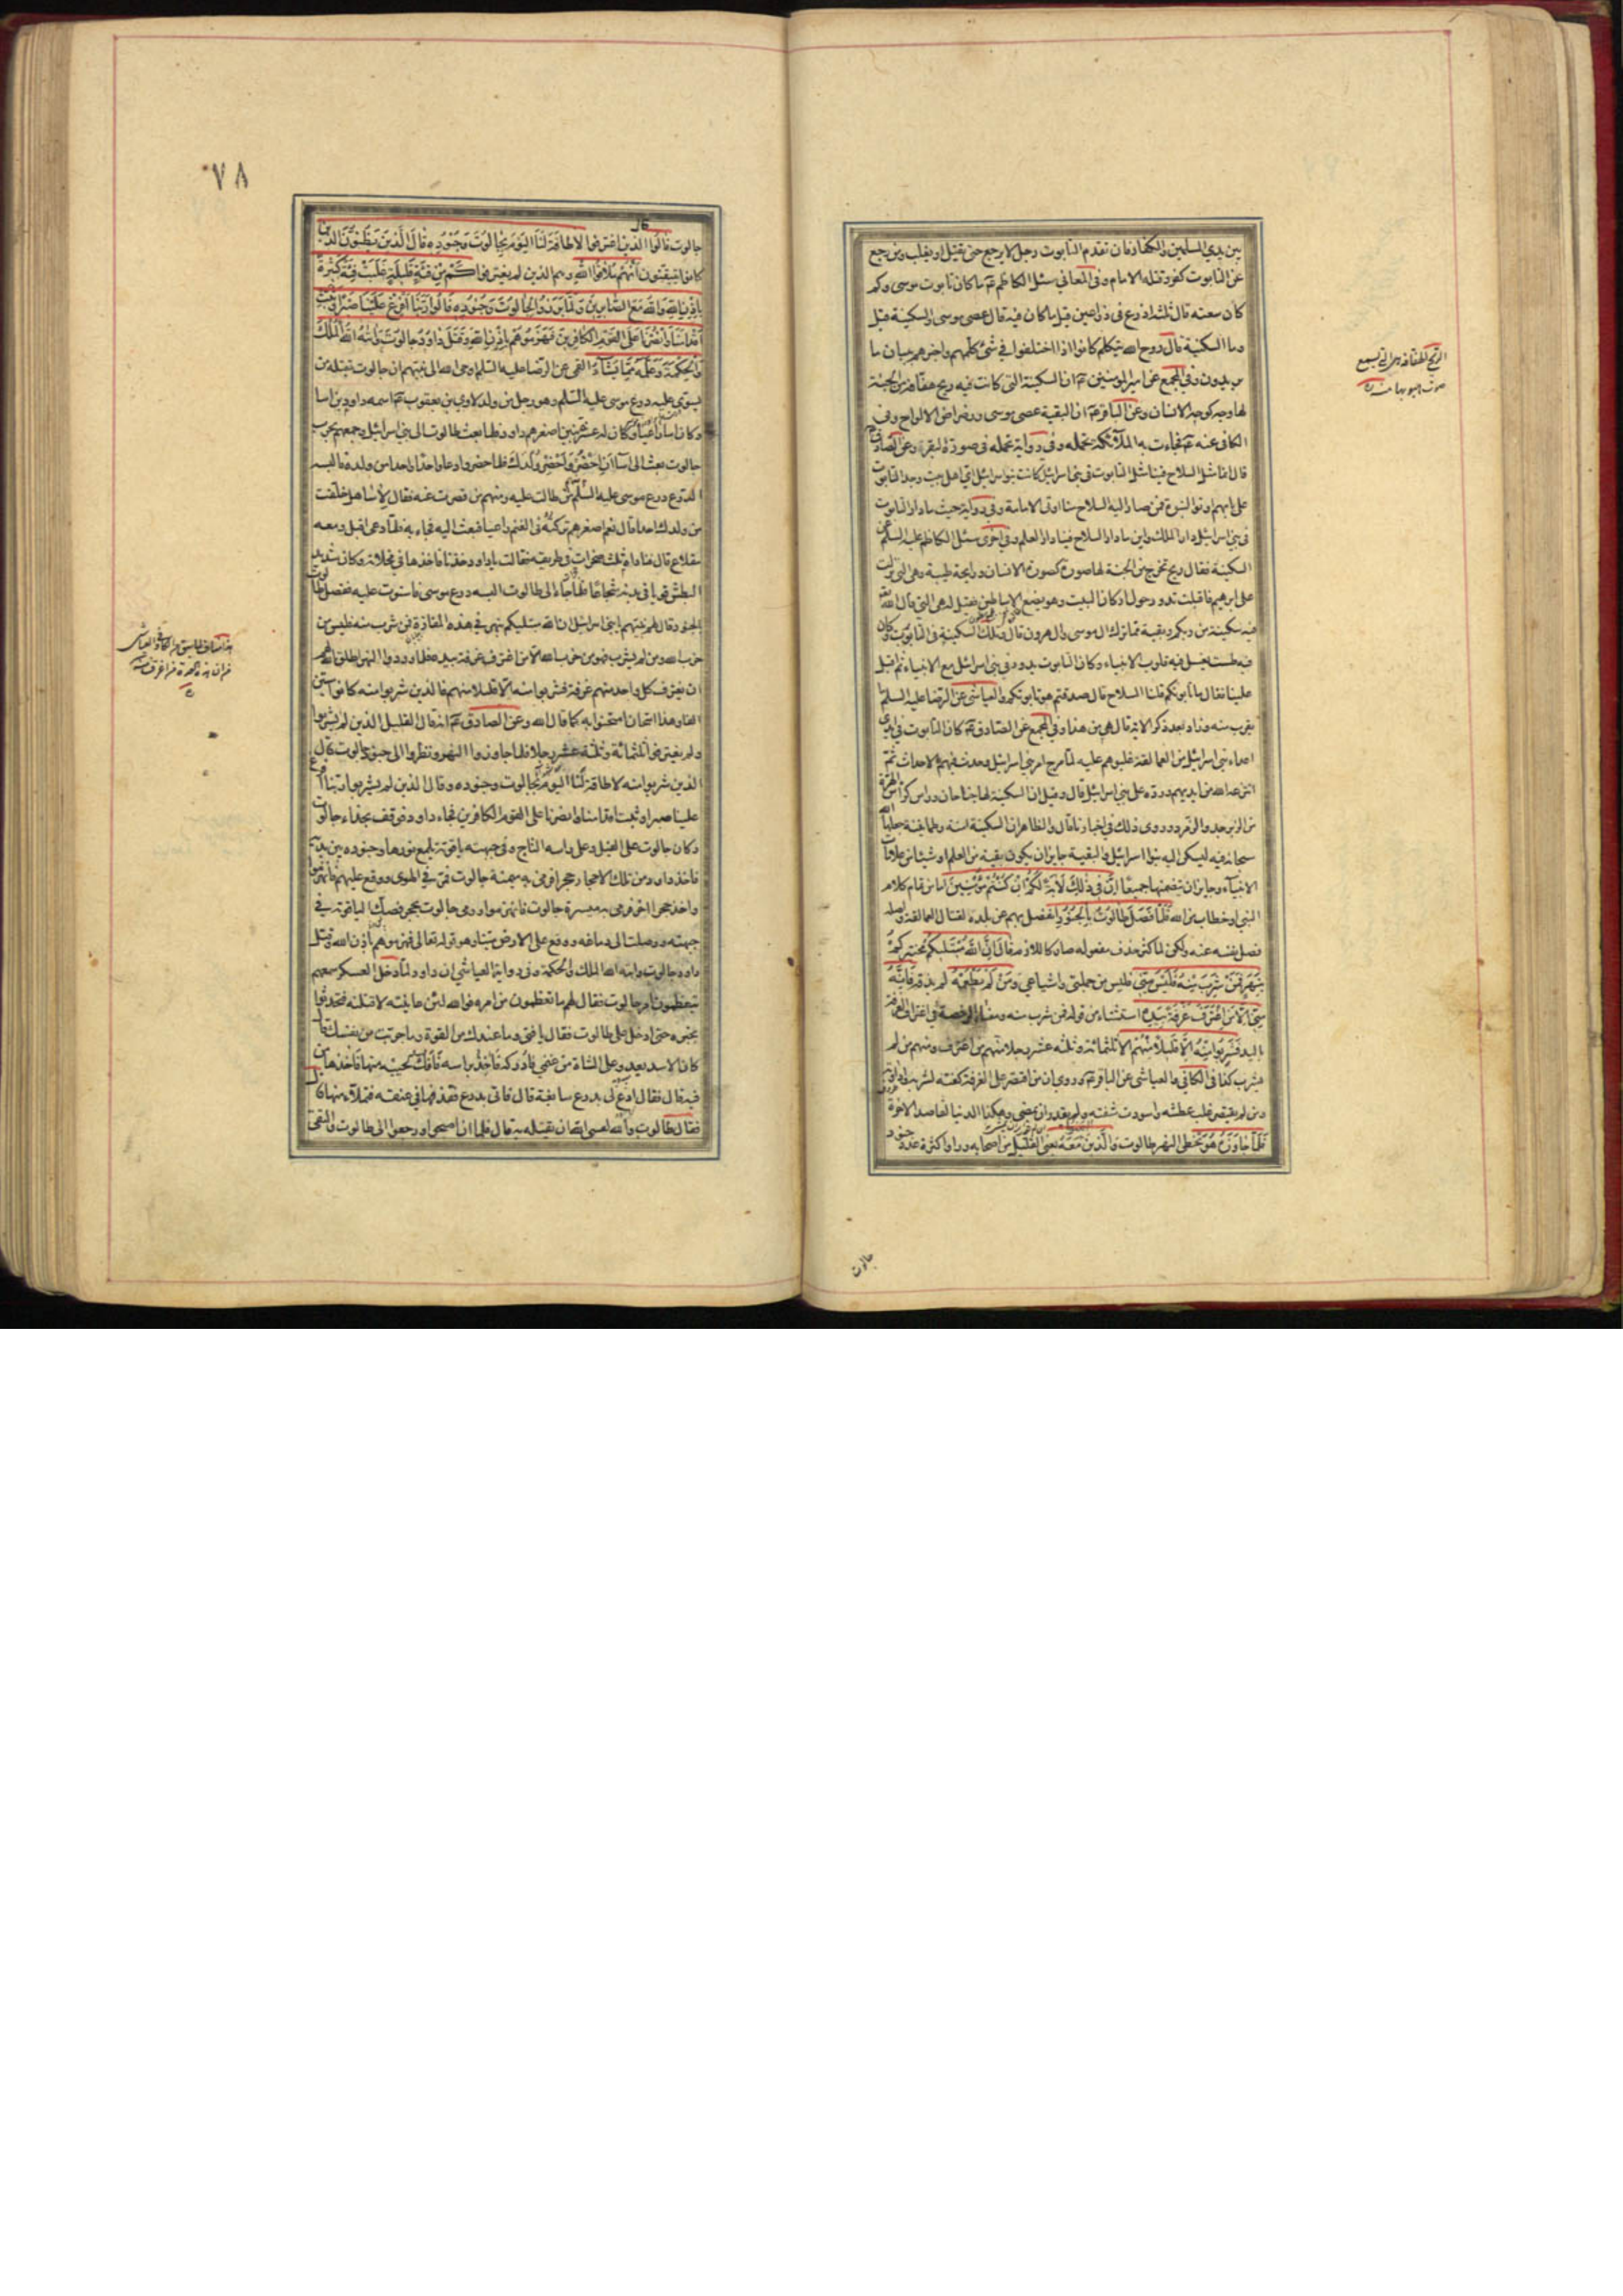 بين يدي المسلمين والكفار فان تقدم التابوت رجل لا يرجع حتى يقتل او يغلب ومن رجع
عن التابوت كفر وقتله الامام وفي المعاني سئل الكاظم ع ما كان تابوت موسى وكم
كان سعته قال ثلثة اذرع في ذراعين قيل ما كان فيه قال عصى موسى والسكينة قيل
وما السكينة قال روح الله يتكلم كانوا اذا اختلفوا في شئ كلمهم واخبرهم ببيان ما
يريدون وفي المجمع عن امير المؤمنين ع ان السكينة التي كانت فيه ريح هفافة من الجنة
لها وجه كوجه الانسان وعن الباقر ع ان البقية عصى موسى ورضراض الالواح وفي
الكافي عنه ع فجاءت به الملائكة تحمله وفي رواية تحمله في صورة البقرة وعن الصادق ع
قال انما مثل السلاح فينا مثل التابوت في بني اسرائيل كانت بنو اسرائيل اي اهل بيت وجد التابوت
على بابهم اوتوا النبوة فمن صار اليه السلاح منا اوتي الامامة وفي رواية حيث ما دار التابوت
في بني اسرائيل دار الملك واين ما دار السلاح فينا دار العلم وفي اخرى سئل الكاظم عليه السلم عن
السكينة فقال ريح تخرج من الجنة لها صورة كصورة الانسان ورايحة طيبة وهي التي نزلت
على ابرهيم فاقبلت تدور حول اركان البيت وهو يضع الاساطين فقيل له هي التي قال الله تع
فيه سكينة من ربكم وبقية مما ترك ال موسى وال هرون قال وتلك السكينة في التابوت وكان
فيه طست يغسل فيه قلوب الانبياء وكان التابوت يدور في بني اسرائيل مع الانبياء ثم اقبل
علينا فقال ما تابوتكم قلنا السلاح قال صدقتم هو تابوتكم والعياشي عن الرضا عليه السلم ما
يقرب منه وزاد بعد ذكر الاية قال هي من هذا وفي المجمع عن الصادق ع كان التابوت في ايدي
اعداء بني اسرائيل من العمالقة غلبوهم عليه لما مرج امر بني اسرائيل وحدث فيهم الاحداث ثم
انتزعه الله من ايديهم ورده على بني اسرائيل قال وقيل ان السكينة لها جناحان وراس كراس الهرة
من الزبرجد والزمرد وروى ذلك في اخبارنا قال والظاهر ان السكينة امنة وطمانينة جعلها الله
سبحانه فيه ليسكن اليه بنو اسرائيل والبقية جايز ان يكون بقية من العلم او شيئا من علامات
الانبياء وجايز ان يتضمنهما جميعا اِنَّ فِي ذٰلِكَ لَآيَةً لَكُمْ اِنْ كُنْتُمْ مُؤْمِنِينَ اما من تمام كلام
النبي او خطاب من الله فَلَمَّا فَصَلَ طَالُوتُ بِالْجُنُودِ انفصل بهم عن بلده لقتال العمالقة واصله
فصل نفسه عنه ولكن لما كثر حذف مفعوله صار كاللازم قَالَ اِنَّ اللهَ مُبْتَلِيكُمْ مختبركم
بِنَهَرٍ فَمَنْ شَرِبَ مِنْهُ فَلَيْسَ مِنِّي فليس من جملتي واشياعي وَمَنْ لَمْ يَطْعَمْهُ لم يذقه فَاِنَّهُ
مِنِّي اِلَّا مَنِ اغْتَرَفَ غُرْفَةً بِيَدِهِ استثناء من قوله فمن شرب منه ومعناه الرخصة في اغتراف الغرفة
باليد فَشَرِبُوا مِنْهُ اِلَّا قَلِيلًا مِنْهُمْ الا ثلثمائة وثلثة عشر رجلا منهم من اغترف ومنهم من لم
يشرب كذا في الكافي والعياشي عن الباقر ع وروي ان من اقتصر على الغرفة كفته لشربه واداوته
ومن لم يقتصر غلب عطشه واسودت شفته ولم يقدر ان يمضي وهكذا الدنيا لقاصد الاخرة
فَلَمَّا جَاوَزَهُ هُوَ تخطى النهر طالوت وَالَّذِينَ مَعَهُ يعني القليل من اصحابه وراوا كثرة عدد جنود
جالوت
الريح الهفافة
٧٨
جالوت قَالُوا الذين اغترفوا لَا طَاقَةَ لَنَا الْيَوْمَ بِجَالُوتَ وَجُنُودِهِ قَالَ الَّذِينَ يَظُنُّونَ الذين
كانوا يتيقنون اَنَّهُمْ مُلَاقُوا اللهِ وهم الذين لم يغترفوا كَمْ مِنْ فِئَةٍ قَلِيلَةٍ غَلَبَتْ فِئَةً كَثِيرَةً
بِاِذْنِ اللهِ وَاللهُ مَعَ الصَّابِرِينَ وَلَمَّا بَرَزُوا لِجَالُوتَ وَجُنُودِهِ قَالُوا رَبَّنَا اَفْرِغْ عَلَيْنَا صَبْرًا وَثَبِّتْ
اَقْدَامَنَا وَانْصُرْنَا عَلَى الْقَوْمِ الْكَافِرِينَ فَهَزَمُوهُمْ بِاِذْنِ اللهِ وَقَتَلَ دَاوُدُ جَالُوتَ وَآتٰيهُ اللهُ الْمُلْكَ
وَالْحِكْمَةَ وَعَلَّمَهُ مِمَّا يَشَاءُ القمي عن الرضا عليه السلم اوحى الله الى نبيهم ان جالوت يقتله من
يستوي عليه درع موسى عليه السلم وهو رجل من ولد لاوي بن يعقوب ع اسمه داود بن اسا
وكان اسا راعيا وكان له عشرة بنين اصغرهم داود فلما بعث طالوت الى بني اسرائيل وجمعهم لحرب
جالوت بعث الى اسا ان احضر واحضر ولدك فلما حضروا دعا واحدا واحدا من ولده فالبسه
الدرع درع موسى عليه السلم فمنهم من طالت عليه ومنهم من قصرت عنه فقال لاسا هل خلفت
من ولدك احدا قال نعم اصغرهم تركته في الغنم راعيا فبعث اليه فجاء به فلما دعي اقبل ومعه
مقلاع قال فناداه ثلث صخرات في طريقه فقالت يا داود خذنا فاخذها في مخلاته وكان شديد
البطش قويا في بدنه شجاعا فلما جاء الى طالوت البسه درع موسى فاستوت عليه ففصل طالوت
بالجنود وقال لهم نبيهم يا بني اسرائيل ان الله مبتليكم بنهر في هذه المفازة فمن شرب منه فليس من
حزب الله ومن لم يشرب فهو من حزب الله الا من اغترف غرفة بيده فلما وردوا النهر اطلق الله لهم
ان يغترف كل واحد منهم غرفة فشربوا منه الا قليلا منهم فالذين شربوا منه كانوا ستين
الفا وهذا امتحان امتحنوا به كما قال الله وعن الصادق ع انه قال القليل الذين لم يشربوا
ولم يغترفوا ثلثمائة وثلثة عشر رجلا فلما جاوزوا النهر ونظروا الى جنود جالوت قال
الذين شربوا منه لا طاقة لنا اليوم بجالوت وجنوده وقال الذين لم يشربوا ربنا افرغ
علينا صبرا وثبت اقدامنا وانصرنا على القوم الكافرين فجاء داود فوقف بحذاء جالوت
وكان جالوت على الفيل وعلى راسه التاج وفي جبهته ياقوتة يلمع نورها وجنوده بين يديه
فاخذ داود من تلك الاحجار حجرا فرمى به ميمنة جالوت فمر في الهوى ووقع عليهم فانهزموا
واخذ حجرا اخر فرمى به ميسرة جالوت فانهزموا ورمى جالوت بحجر فصك الياقوتة في
جبهته ووصلت الى دماغه ووقع على الارض ميتا وهو قوله تعالى فهزموهم باذن الله وقتل
داود جالوت واتيه الله الملك والحكمة وفي رواية العياشي ان داود لما دخل العسكر سمعهم
يتعظمون امر جالوت فقال لهم ما تعظمون من امره فوالله لئن عاينته لاقتلنه فتحدثوا
بخبره حتى ادخل على طالوت فقال يا فتى وما عندك من القوة وما جربت من نفسك قال
كان الاسد يعدو على الشاة من غنمي فادركه فاخذ براسه فافك لحييه منها فاخذها من
فيه قال فقال ادع لي بدرع سابغة قال فاتي بدرع فقذفها في عنقه فتملأ منها قال
فقال طالوت والله لعسى الله ان يقتله به قال فلما ان اصبحوا ورجعوا الى طالوت والتقى